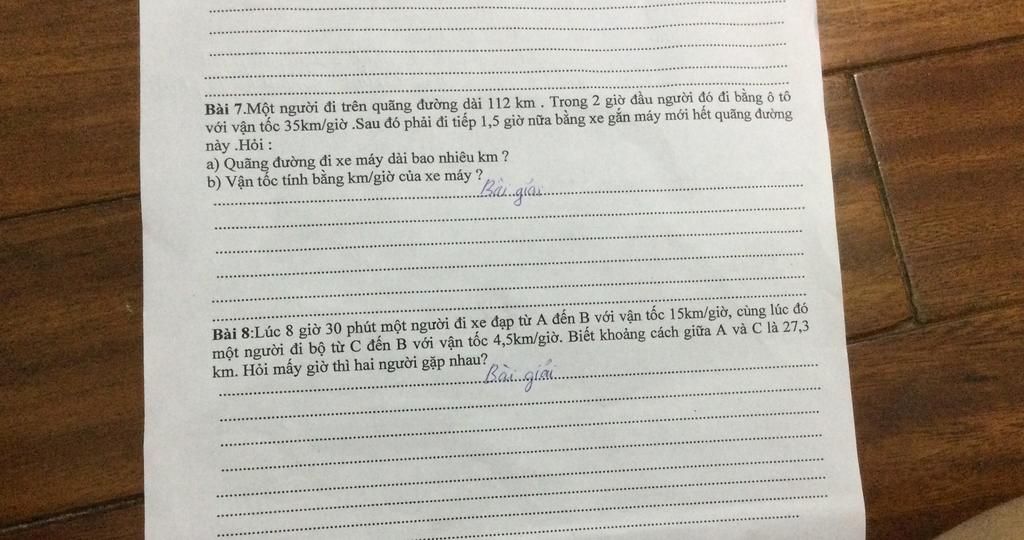 Bài 7.Một người đi trên quãng đường dài 112 km . Trong 2 giờ đầu người đó đi bằng ô tô
với vận tốc 35km/giờ .Sau đó phải đi tiếp 1,5 giờ nữa bằng xe gắn máy mới hết quãng đường
này .Hỏi :
a) Quãng đường đi xe máy dài bao nhiêu km ?
b) Vận tốc tính bằng km/giờ của xe máy ?
Bài giải
Bài 8:Lúc 8 giờ 30 phút một người đi xe đạp từ A đến B với vận tốc 15km/giờ, cùng lúc đó
một người đi bộ từ C đến B với vận tốc 4,5km/giờ. Biết khoảng cách giữa A và C là 27,3
km. Hỏi mấy giờ thì hai người gặp nhau?
Bài giải